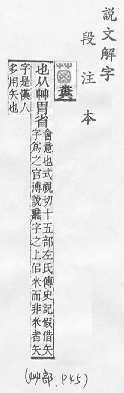 說文解字
段注本
糞
也从艸胃省
會意也式視切十五部左氏傳史記假借矢
字爲之官溥說糞字之上佀米而非米者矢
字是漢人
多用矢也
(艸部, P45)